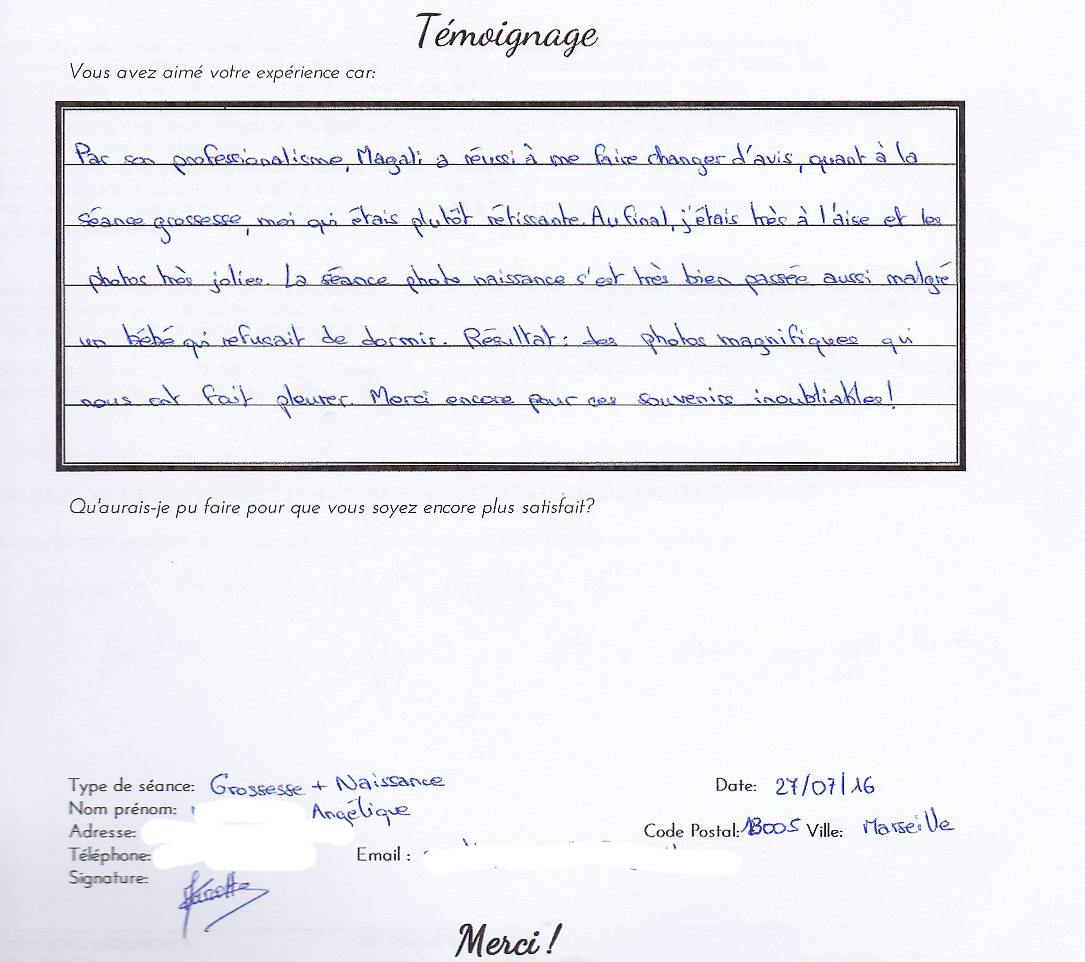 Témoignage
Vous avez aimé votre expérience car:
Par son professionalisme, Magali a réussi à me faire changer d'avis, quant à la
séance grossesse, moi qui étais plutôt rétissante. Au final, j'étais très à l'aise et les
photos très jolies. La séance photo naissance s'est très bien passée aussi malgré
un bébé qui refusait de dormir. Résultat : des photos magnifiques qui
nous ont fait pleurer. Merci encore pour ces souvenirs inoubliables !
Qu'aurais-je pu faire pour que vous soyez encore plus satisfait?
Type de séance: Grossesse + Naissance Date: 27/07/16
Nom prénom: Angélique
Adresse: Code Postal: 13005 Ville: Marseille
Téléphone: Email :
Signature:
Merci !